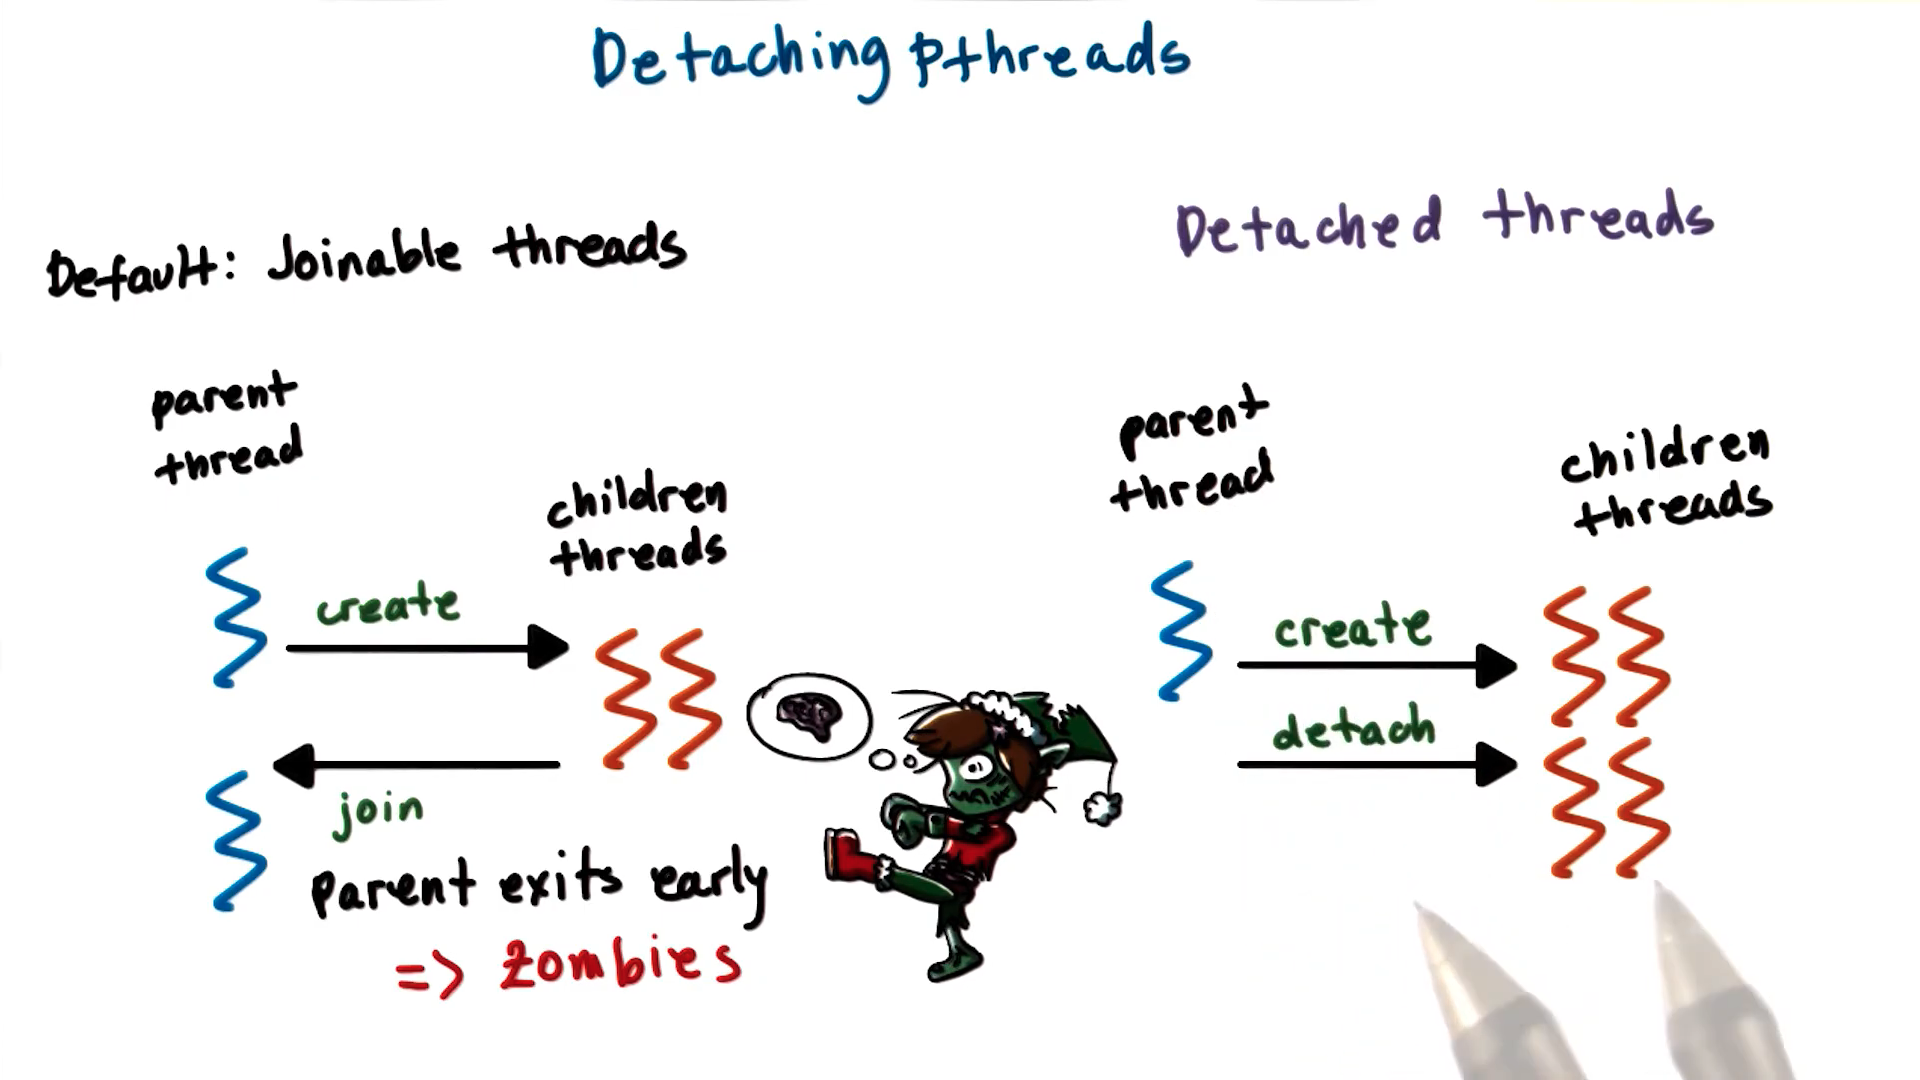 Detaching pthreads
Default: Joinable threads
parent
thread
children
threads
create
join
parent exits early
=> Zombies
Detached threads
parent
thread
children
threads
create
detach